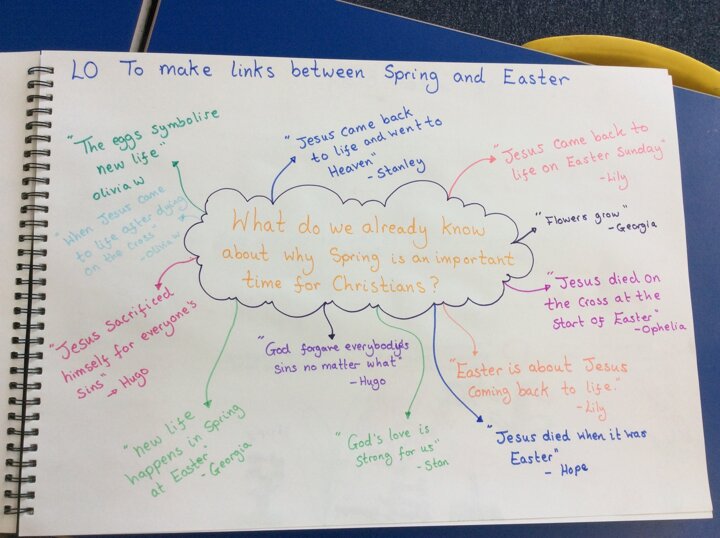 LO To make links between Spring and Easter
"The eggs symbolise
new life"
olivia w
"When Jesus came
to life after dying
on the Cross"
-olivia w
"Jesus came back
to life and went to
Heaven"
-Stanley
"Jesus came back to
life on Easter Sunday"
-Lily
"Flowers grow"
-Georgia
What do we already know
about why Spring is an important
time for Christians?
"Jesus died on
the Cross at the
Start of Easter"
-Ophelia
"Jesus Sacrificed
himself for everyone's
Sins"
- Hugo
"God forgave everybodys
Sins no matter what"
-Hugo
"Easter is about Jesus
Coming back to life."
-Lily
"new life
happens in Spring
at Easter"
-Georgia
"God's love is
Strong for us"
-Stan
"Jesus died when it was
Easter"
- Hope